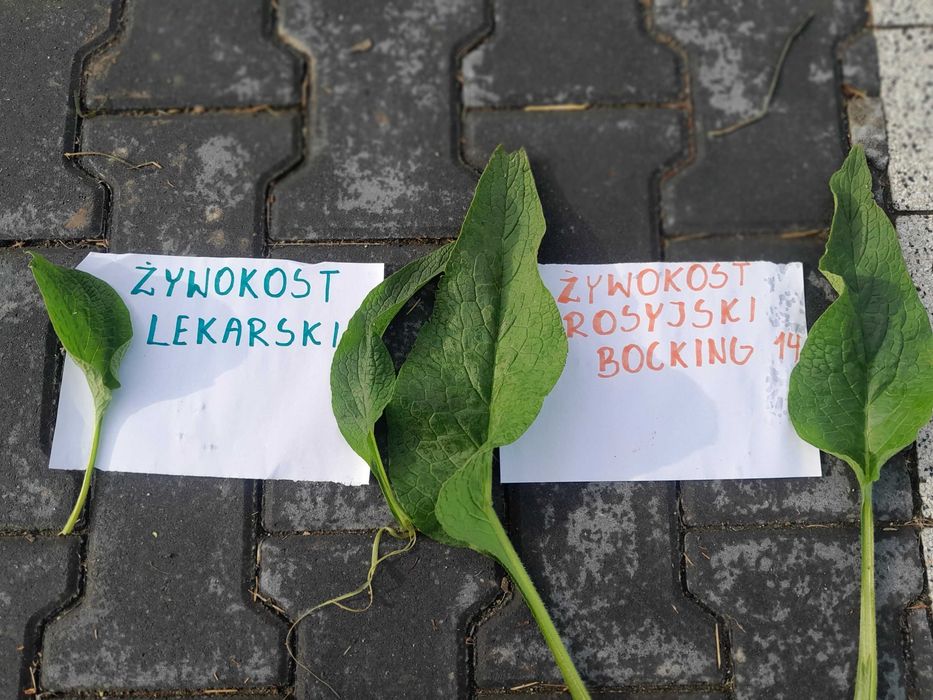 ŻYWOKOST
LEKARSKI
ŻYWOKOST
ROSYJSKI
BOCKING 14